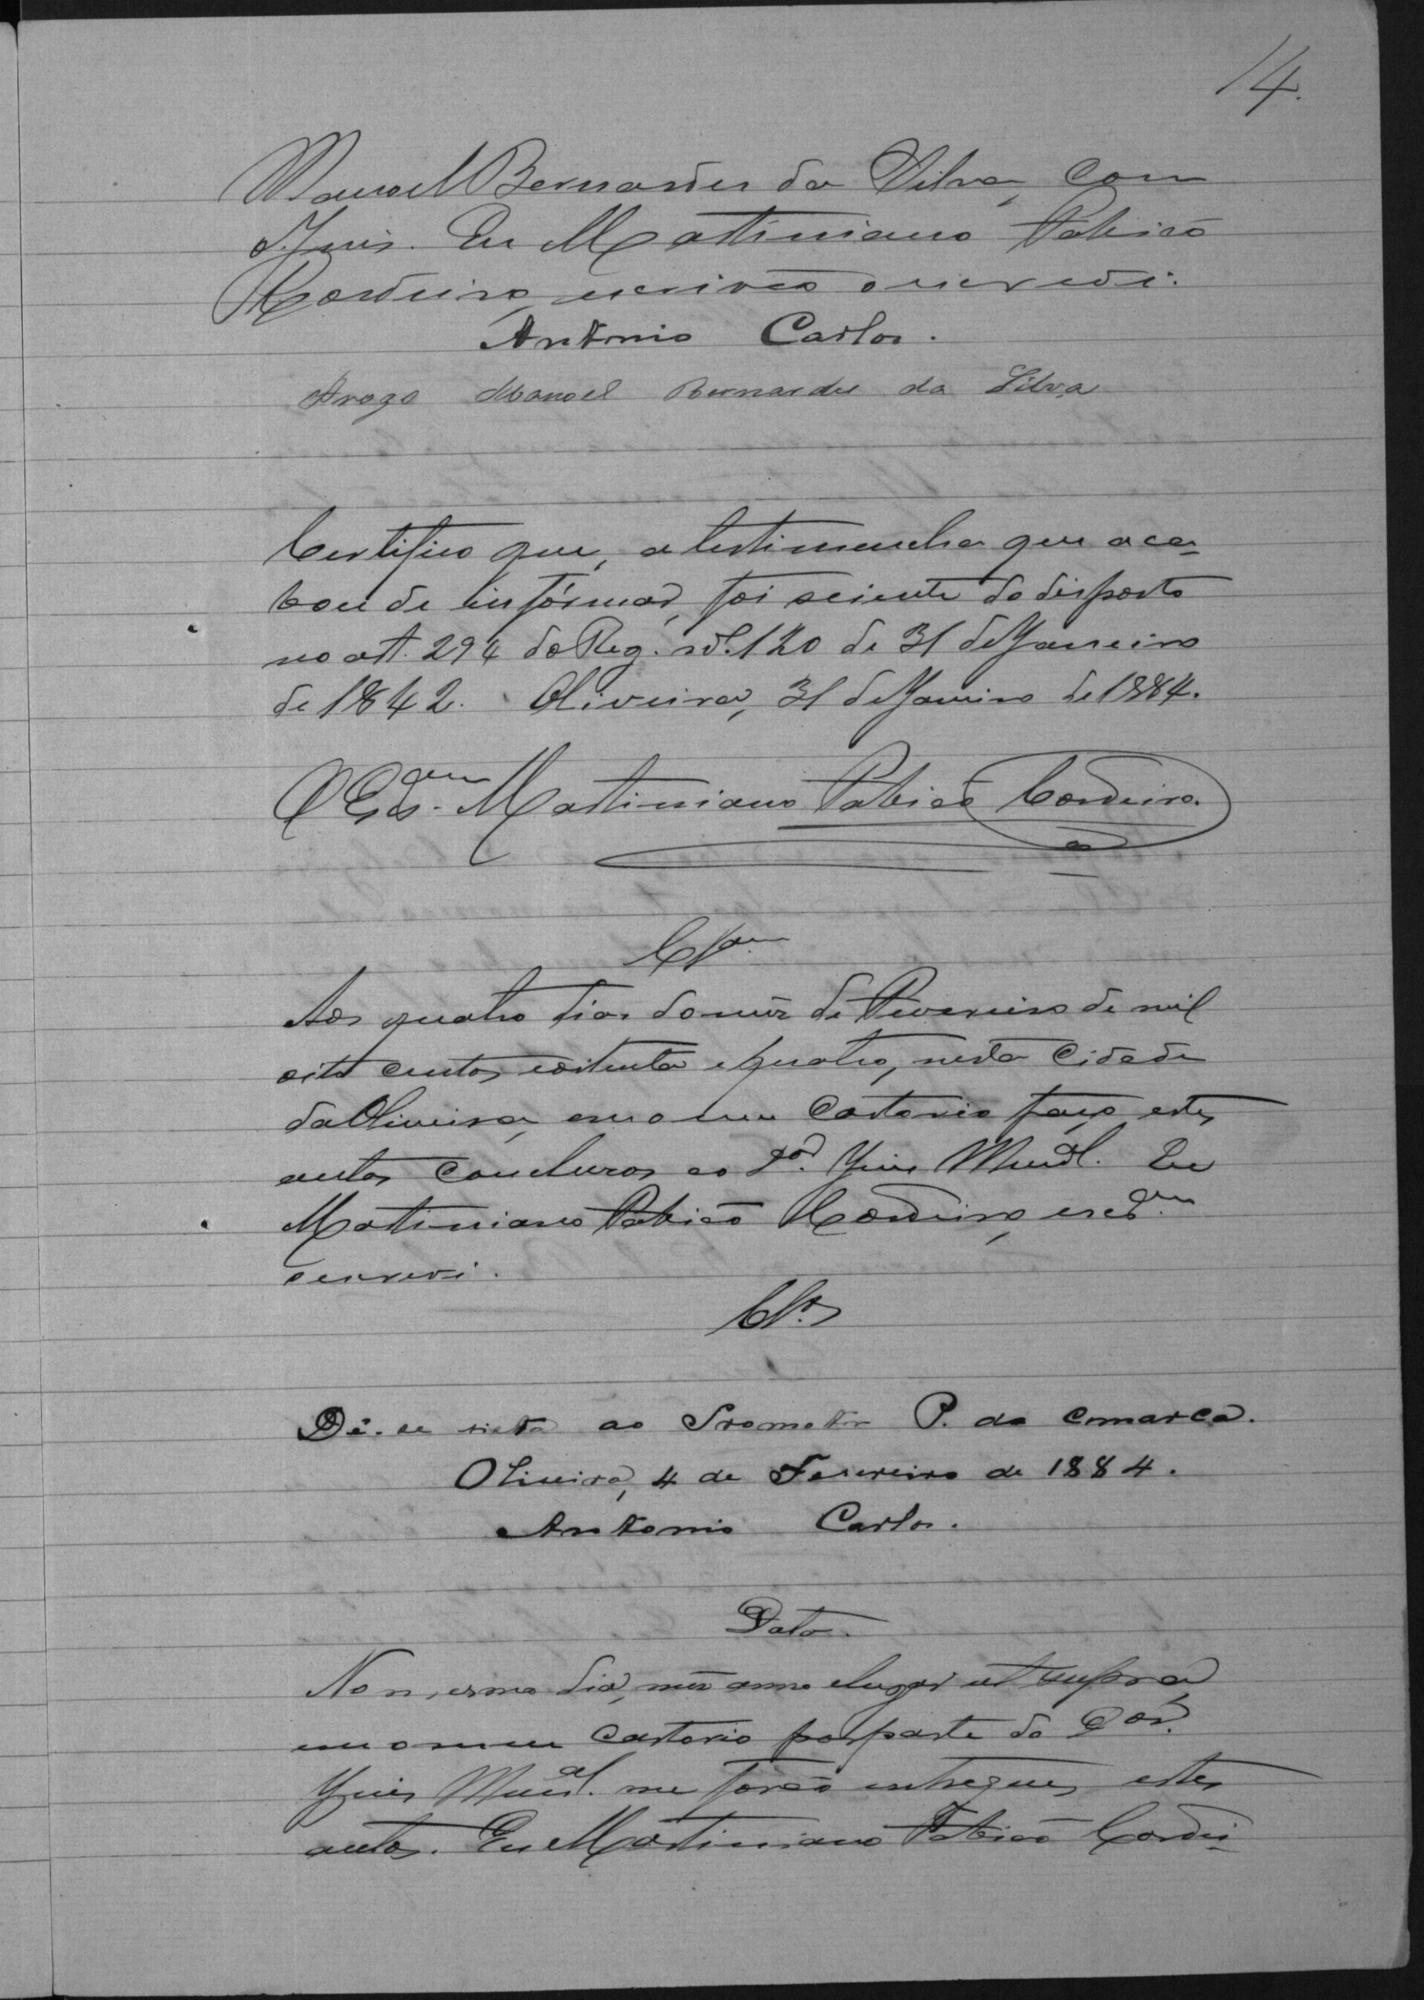 14.
Manoel Bernardes da Silva, com
o Juis. Eu Martiniano Patricio
Cordeiro, escrivão o escrevi.
Antonio Carlos.
Arogo Manoel Bernardes da Silva
Certifico que, a testimunha que aca-
bou de informar, foi sciente do disposto
no art. 294 do Reg. nº. 120 de 31 de Janeiro
de 1842. Oliveira, 31 de Janeiro de 1884.
O Esc.am Martiniano Patricio Cordeiro.
Clsam
Aos quatro dias do mês de Fevereiro de mil
oito centos e oitenta e quatro, nesta Cidade
da Oliveira, em o meu Cartorio faço estes
autos Concluzos ao Dor. Juis Munal. Eu
Martiniano Patricio Cordeiro, escram
o escrevi.
Clsos
Dê-se vista ao Promotor P. da comarca.
Oliveira, 4 de Fevereiro de 1884.
Antonio Carlos.
Data.
No mesmo dia, mês anno e lugar ut supra,
em o meu cartorio por parte do Dor.
Juis Munal. me forão entregues estes
autos. Eu Martiniano Patricio Cordei-